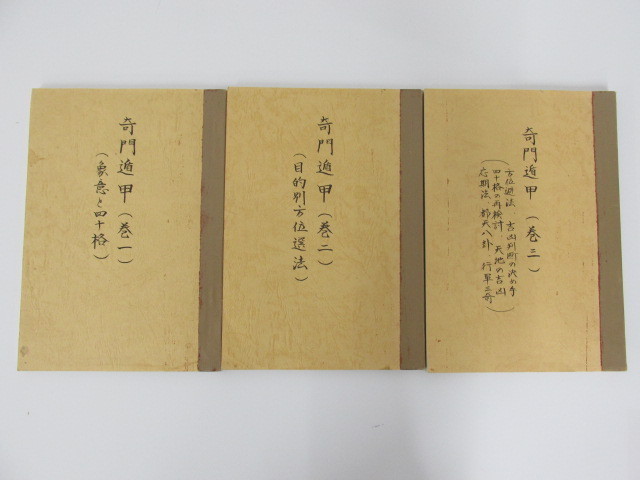 奇門遁甲(巻一)
(象意と四十格)
奇門遁甲(巻二)
(目的別方位選法)
奇門遁甲(巻三)
(方位避法 吉凶判断の決め手
四十格の再検討 天地の吉凶
応期法 都天八卦 行軍三奇)